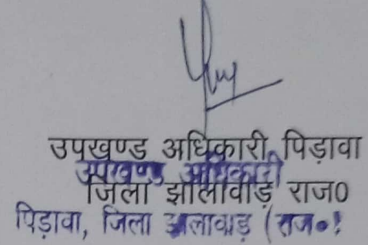 उपखण्ड अधिकारी पिड़ावा
उपखण्ड अधिकारी
जिला झालावाड़ राज0
पिड़ावा, जिला झालावाड़ (राज०)